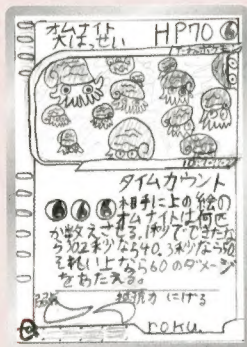 オムナイト
大はっせい
HP70
タイムカウント
相手に上の絵の
オムナイトは何匹
か数えさせる。1秒でできたな
ら30.2秒なら40.3秒なら50
それ以上なら60のダメージ
をあたえる。
抵抗力 にげる
roku.